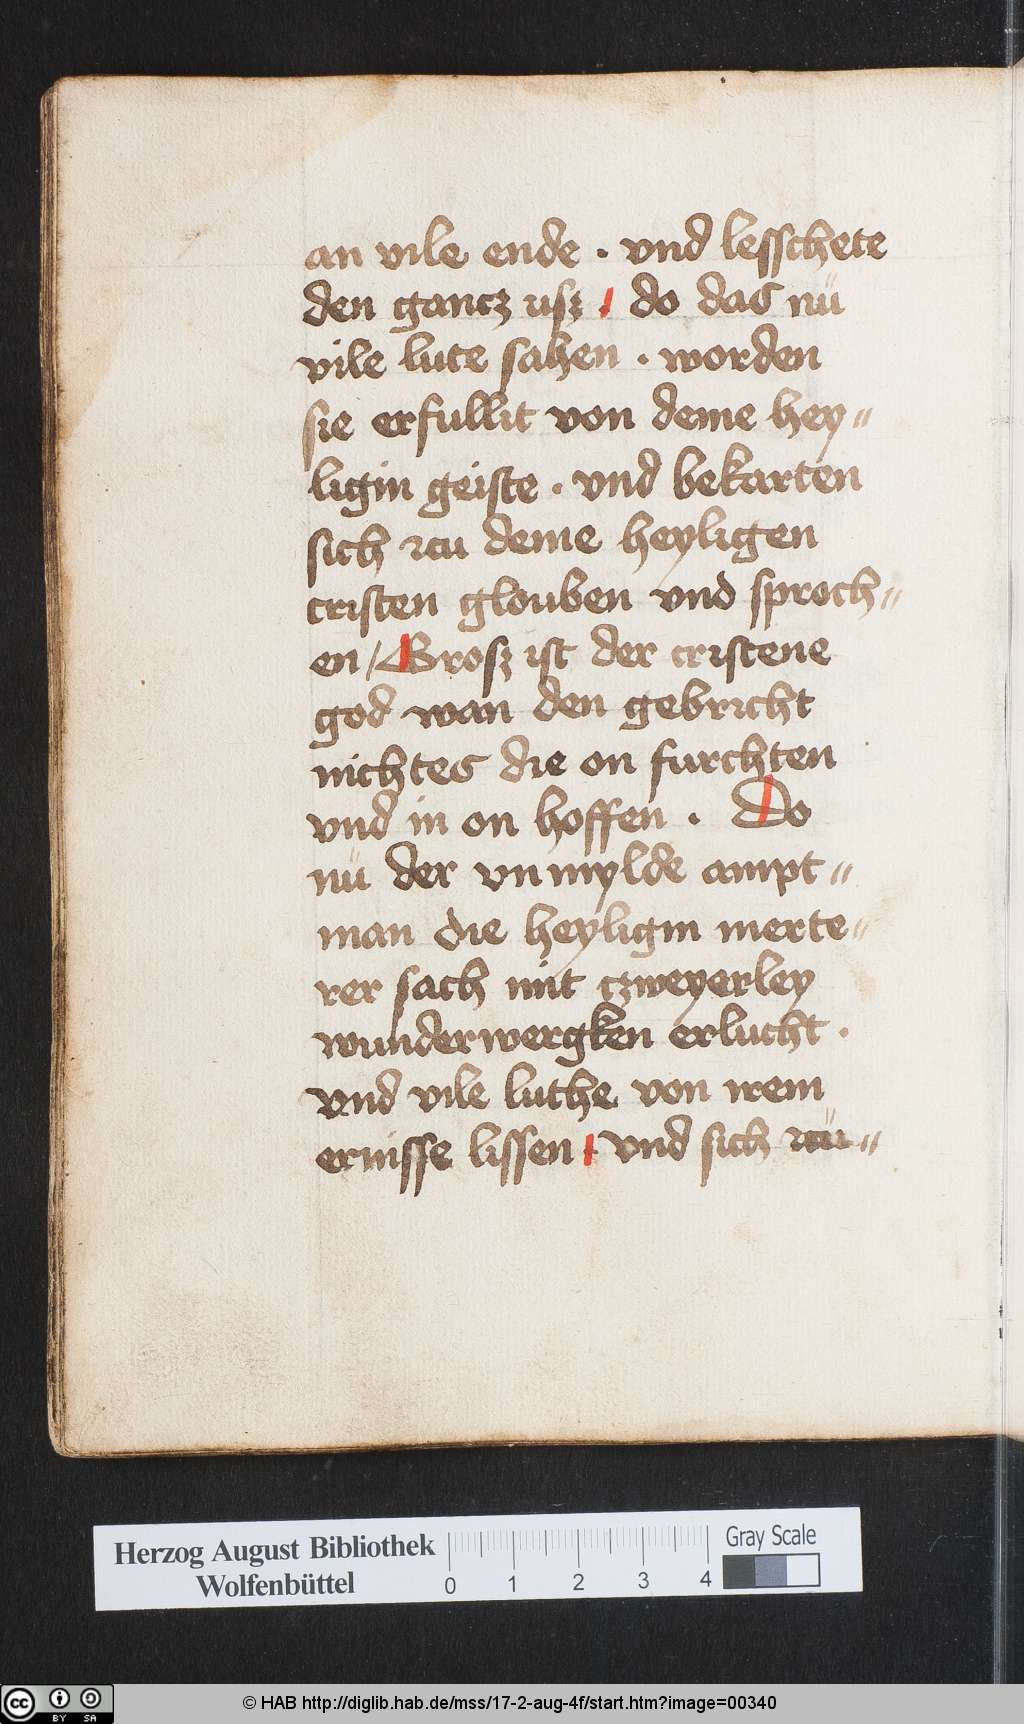 an vile ende · vnd lesschete
den gancz usz · do das nü
vile lute sahen · worden
sie erfullit von deme hey⸗
ligin geiste · vnd bekarten
sich zcu deme heyligen
cristen glouben vnd sproch⸗
en / Grosz ist der cristene
god wan den gebricht
nichtes die on furchten
vnd in on hoffen · Do
nü der vnmylde ampt⸗
man die heyligin merte⸗
rer sach mit czweyerley
wunderwergken erlucht ·
vnd vile luthe von irem
ernisse lissen · vnd sich zcü⸗
Herzog August Bibliothek
Wolfenbüttel
0 1 2 3 4
Gray Scale
cc BY SA
© HAB http://diglib.hab.de/mss/17-2-aug-4f/start.htm?image=00340